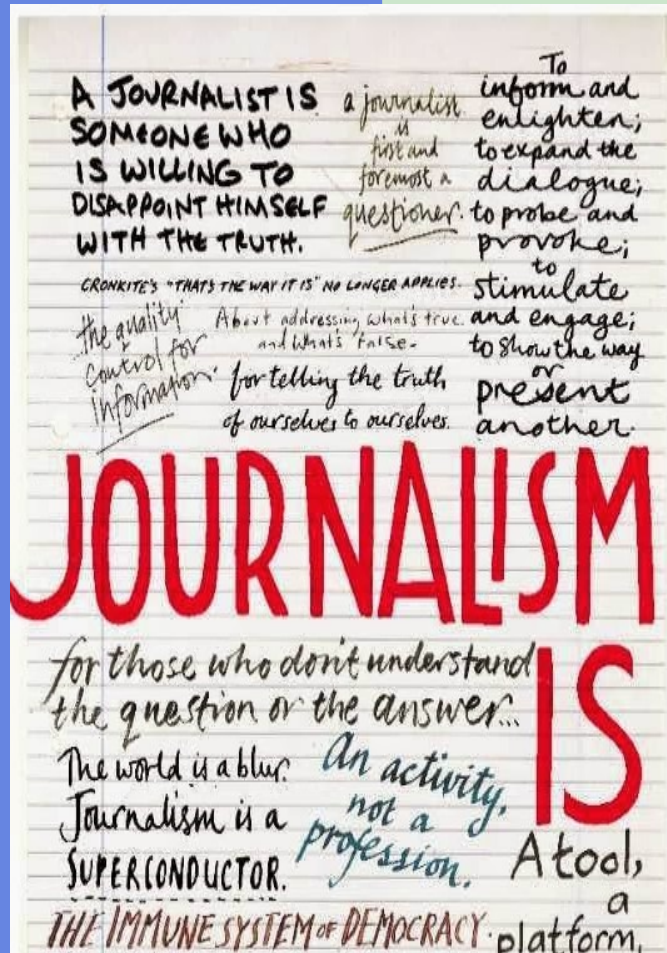 A JOURNALIST IS
SOMEONE WHO
IS WILLING TO
DISAPPOINT HIMSELF
WITH THE TRUTH.
a journalist
is
first and
foremost a
questioner.
To
inform and
enlighten;
to expand the
dialogue;
to probe and
provoke;
to
stimulate
and engage;
to show the way
or
present
another.
CRONKITE'S "THAT'S THE WAY IT IS" NO LONGER APPLIES.
the quality
control for
information.
About addressing what's true
and what's false.
for telling the truth
of ourselves to ourselves.
JOURNALISM
IS
for those who don't understand
the question or the answer...
The world is a blur.
Journalism is a
SUPERCONDUCTOR.
An activity,
not a
profession.
A tool,
a
platform,
THE IMMUNE SYSTEM OF DEMOCRACY.